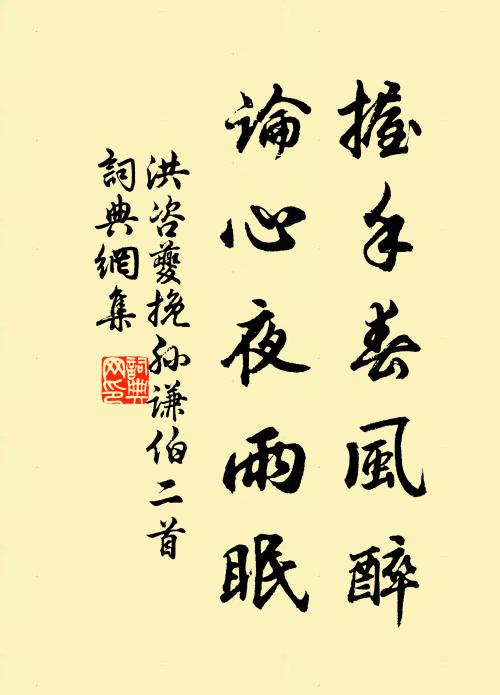 握手春風醉
論心夜雨眠
洪咨夔挽孙謙伯二首
詞典網集
詞典
网印